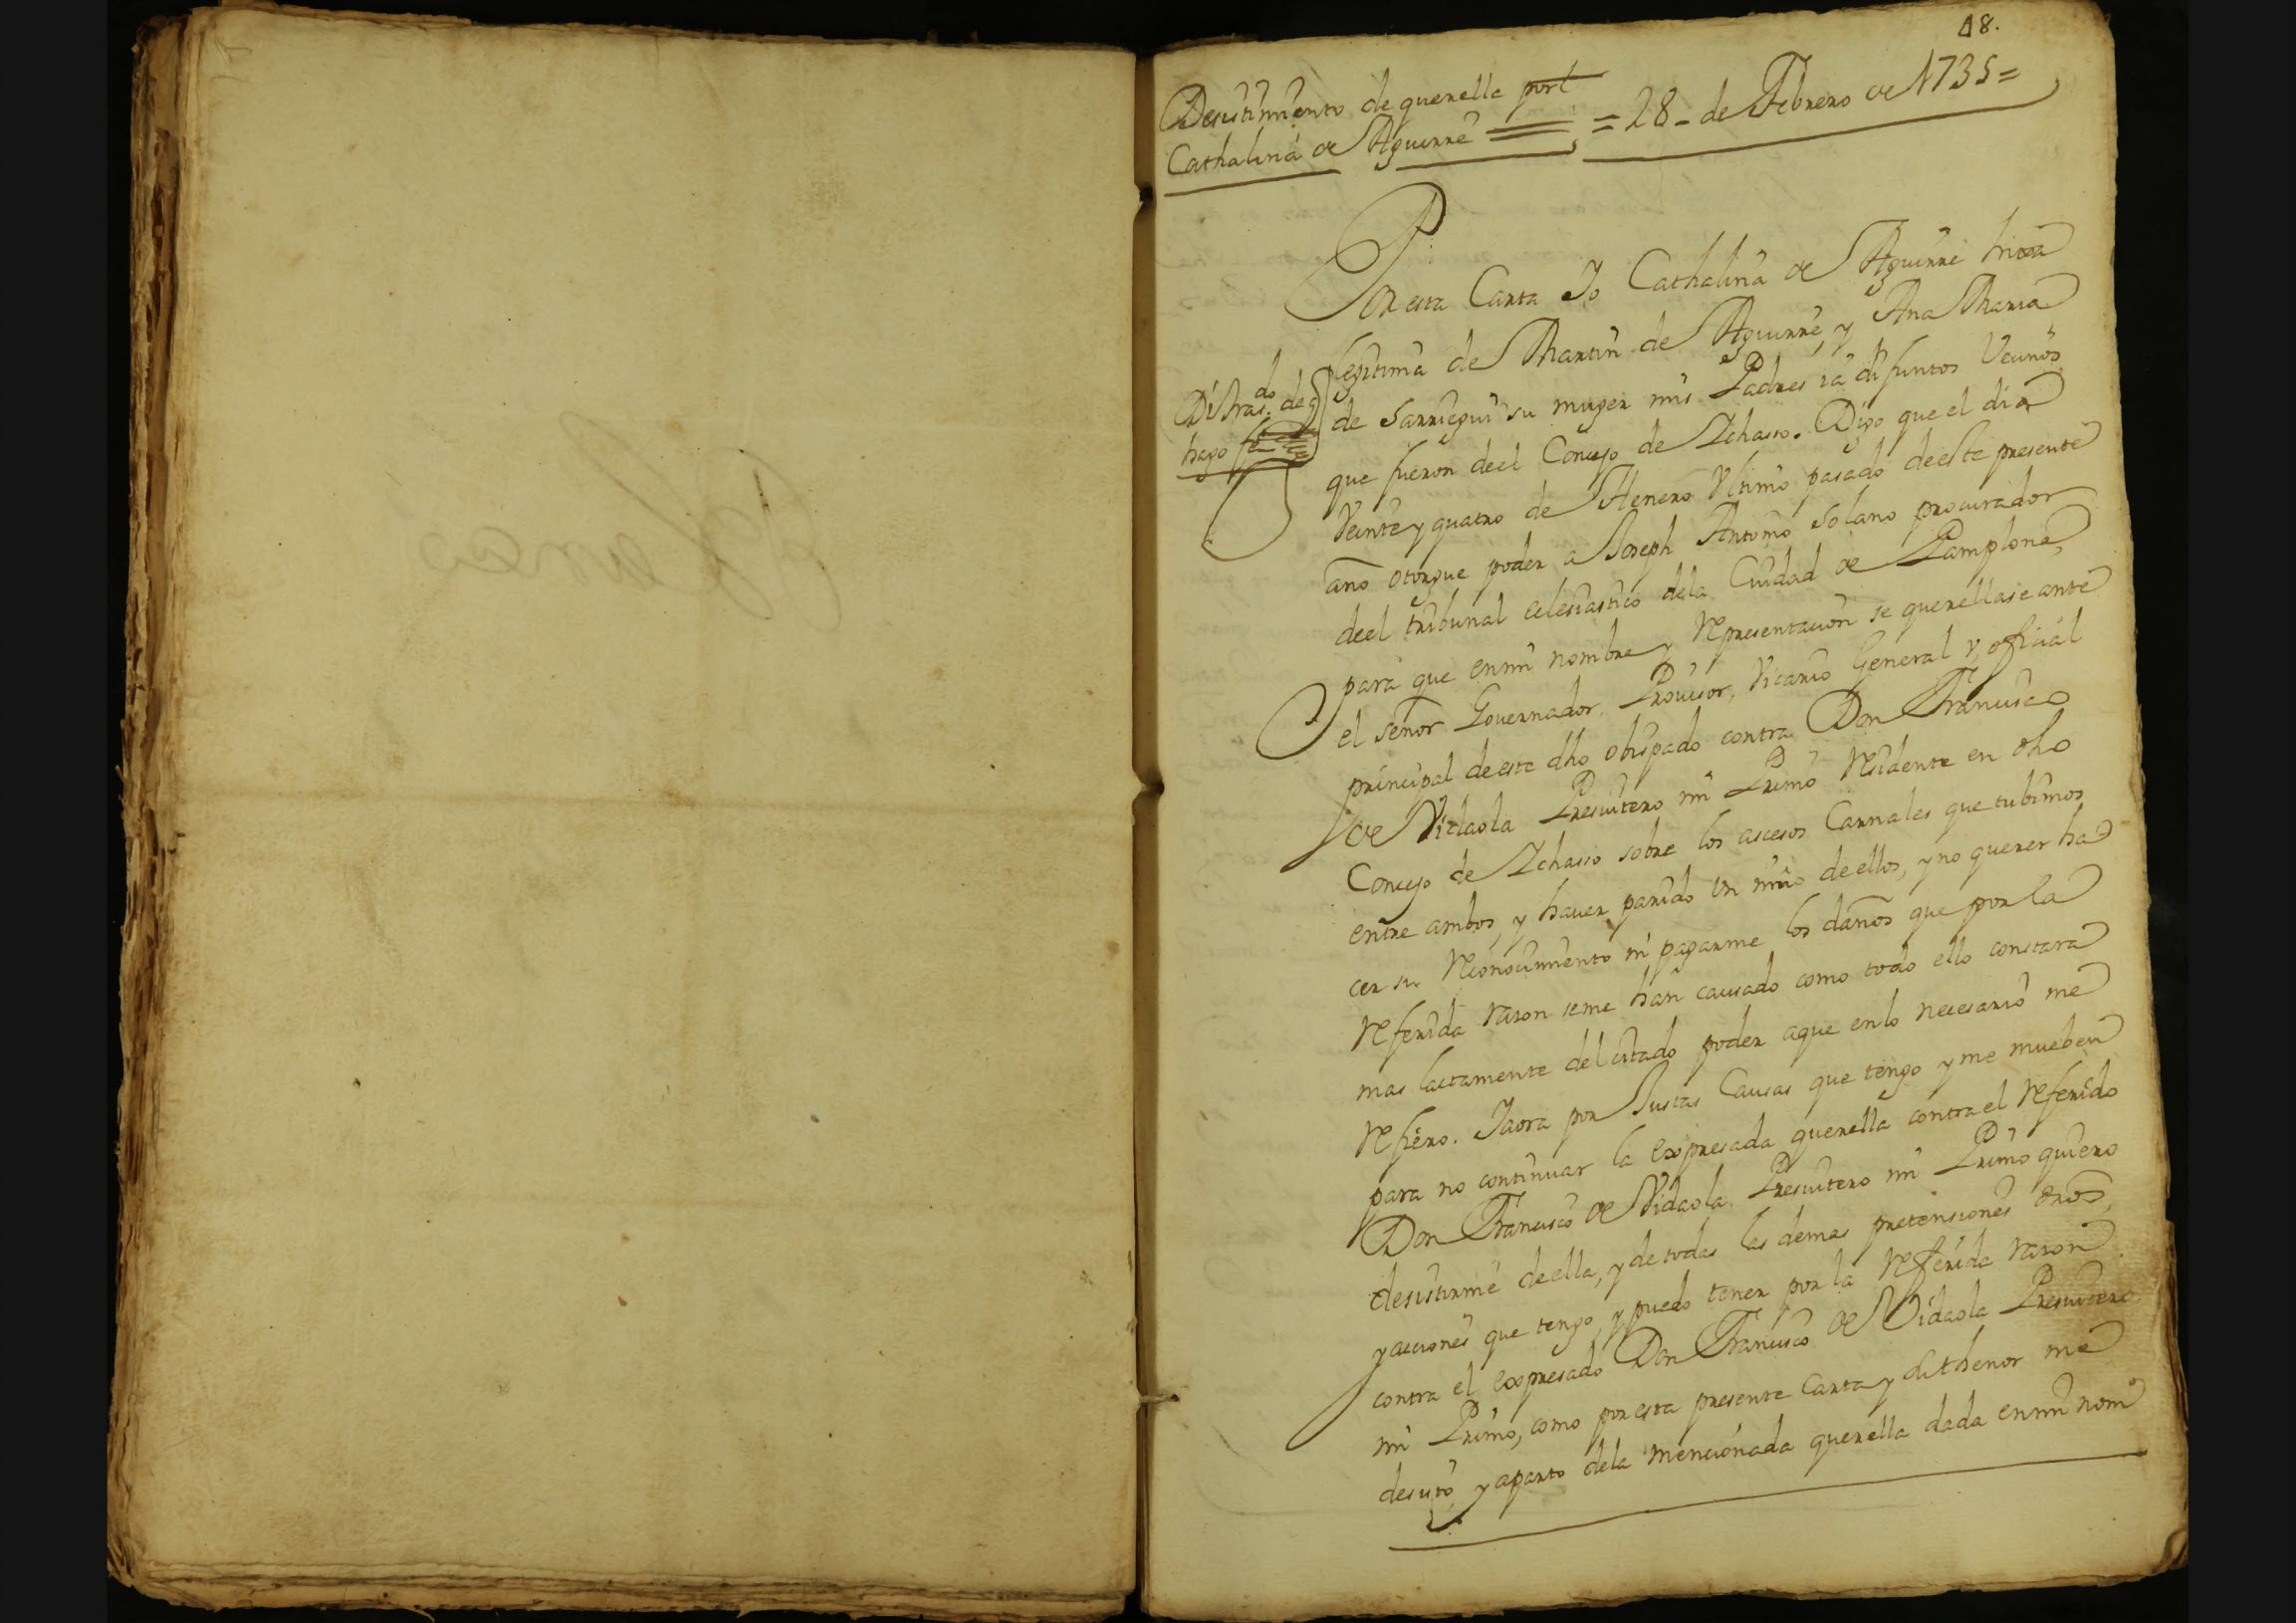 18.
Desistimiento de querella por
Cathalina de Aguirre = 28 - de Febrero de 1735 =
Por esta Carta Io Cathalina de Aguirre hixa
legitima de Martin de Aguirre, y Ana Maria
de Sarriegui su muger mis Padres ia difuntos Vecinos
que fueron deel Concejo de Ichasso. Digo que el dia
Veinte y quatro de Henero Ultimo pasado deeste presente
año otorgue poder a Joseph Antonio Solano procurador
deel tribunal eclesiastico dela Ciudad de Pamplona,
para que enmi nombre y Representacion se querellase ante
el señor Governador, Provisor, Vicario General y oficial
principal deeste dho obispado contra Don Francisco
de Vidaola Presvitero mi Primo Residente en dho
Concejo de Ichasso sobre los ascesos Carnales que tubimos
entre ambos, y haver parido un niño deellos, y no querer ha
cer su Reconocimiento ni pagarme los daños que por la
Referida razon seme han causado como todo ello constara
mas lactamente del citado poder aque enlo necesario me
Refiero. Iaora por Justas Causas que tengo y me mueben
para no continuar la expresada querella contra el Referido
Don Francisco de Vidaola Presvitero mi Primo quiero
desistirme deella, y de todas las demas pretensiones
y acciones que tengo, y puedo tener por la Referida razon
contra el expresado Don Francisco de Vidaola Presvitero
mi Primo, como por esta presente Carta y su thenor me
desisto, y aparto dela mencionada querella dada enmi nom
do
hago fee